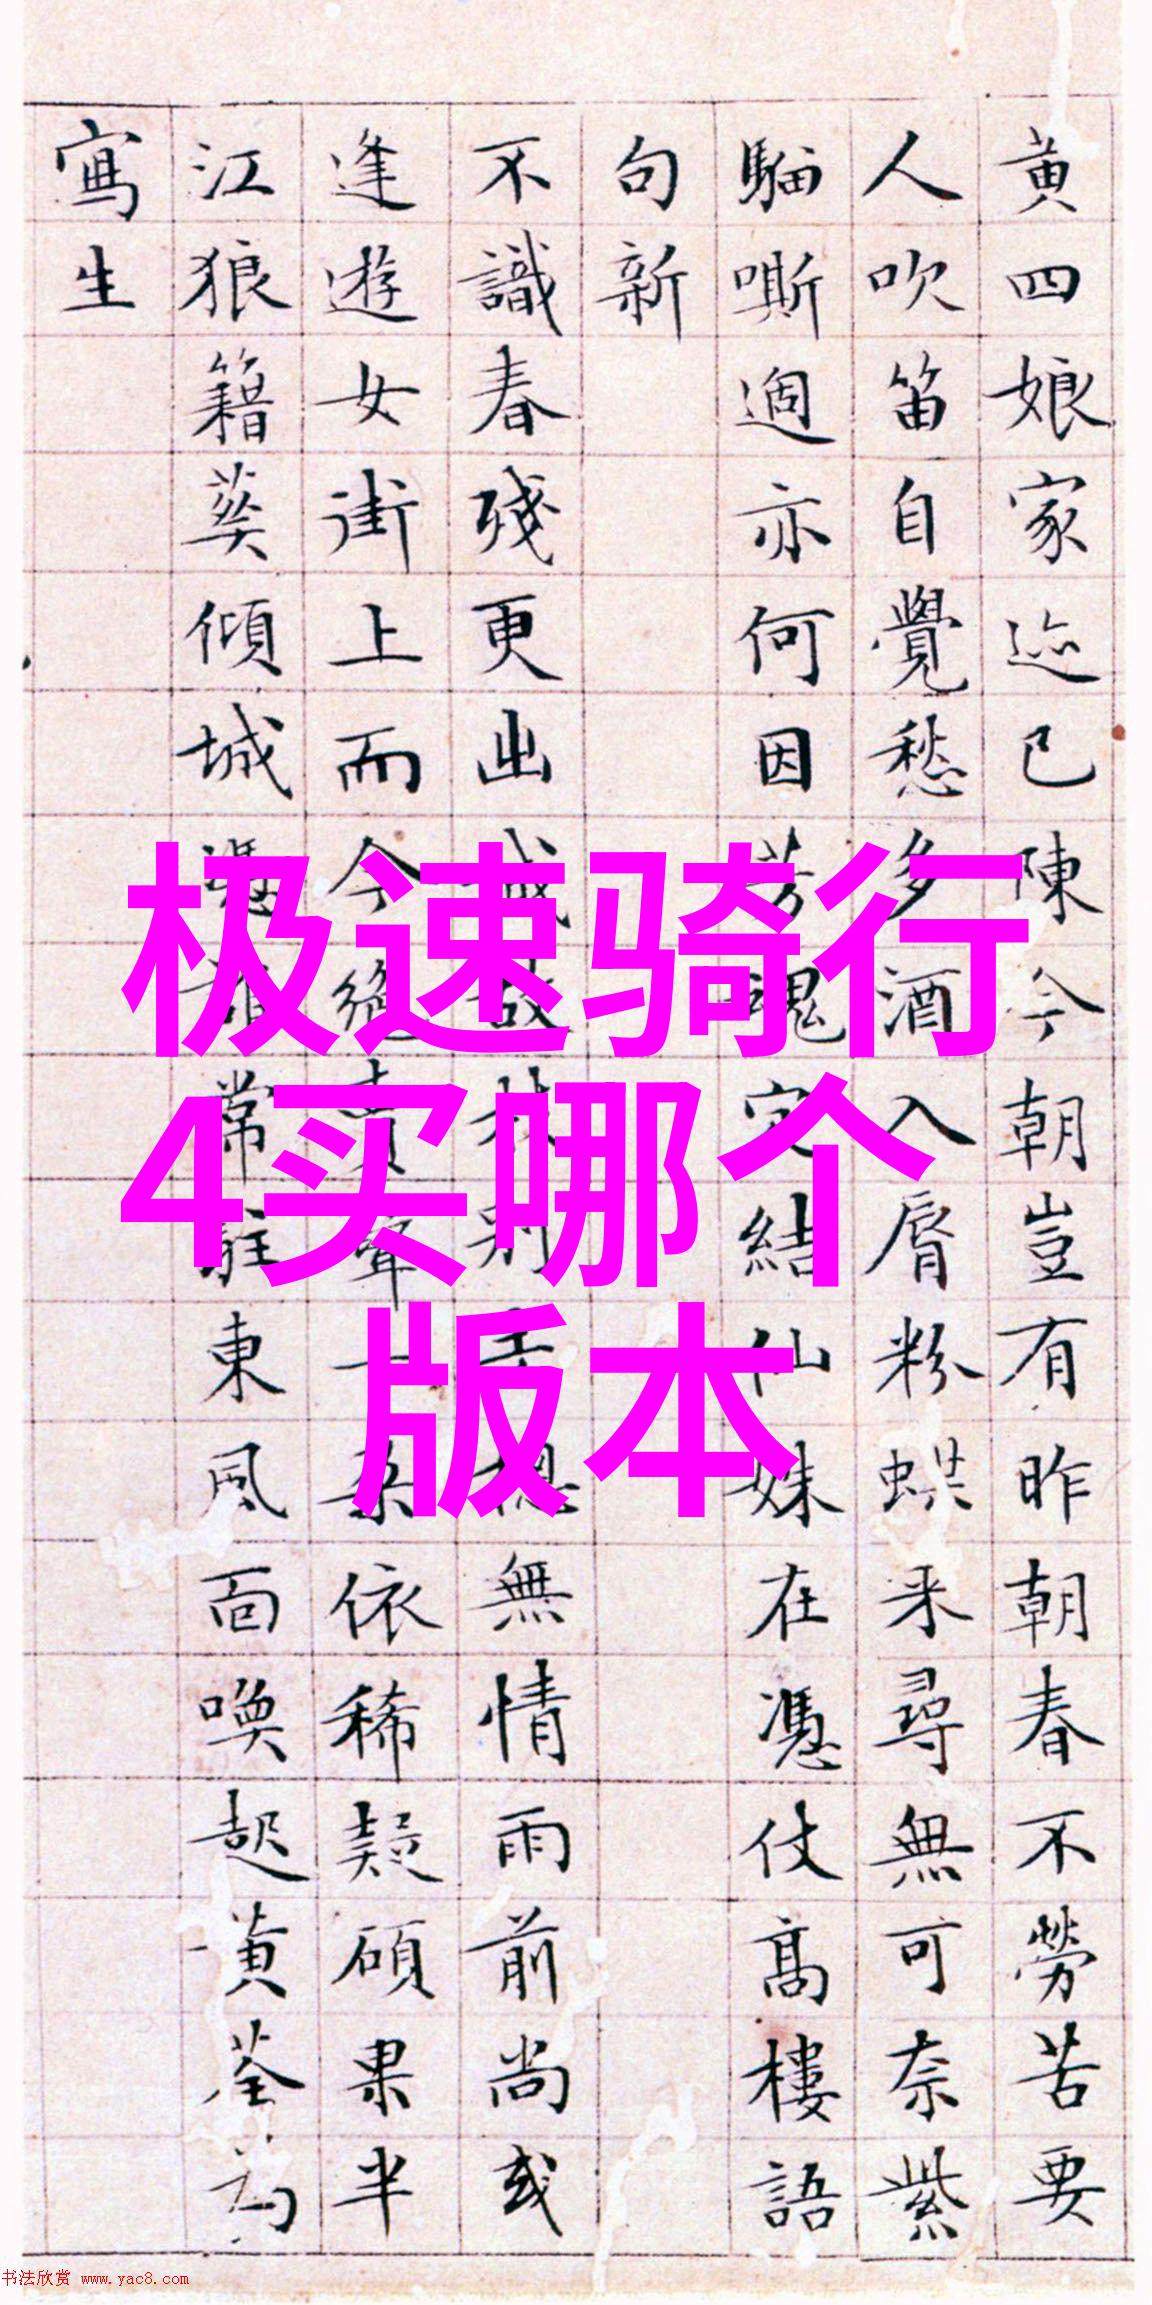 黄四娘家迹已陳今朝豈有昨朝春不勞苦要
人吹笛自覺愁多酒入脣粉蝶来尋無可奈紫
騮嘶過亦何因芳魂定結仙姝在憑仗高樓語
句新
不識春殘更出城故枝别去總無情雨前尚或
逢遊女街上而今絶賣聲一朵依稀疑碩果半
江狼籍葵傾城憑誰常駐東風面喚起黄荃為
寫生
极速骑行
4买哪个
版本
书法欣赏 www.yac8.com